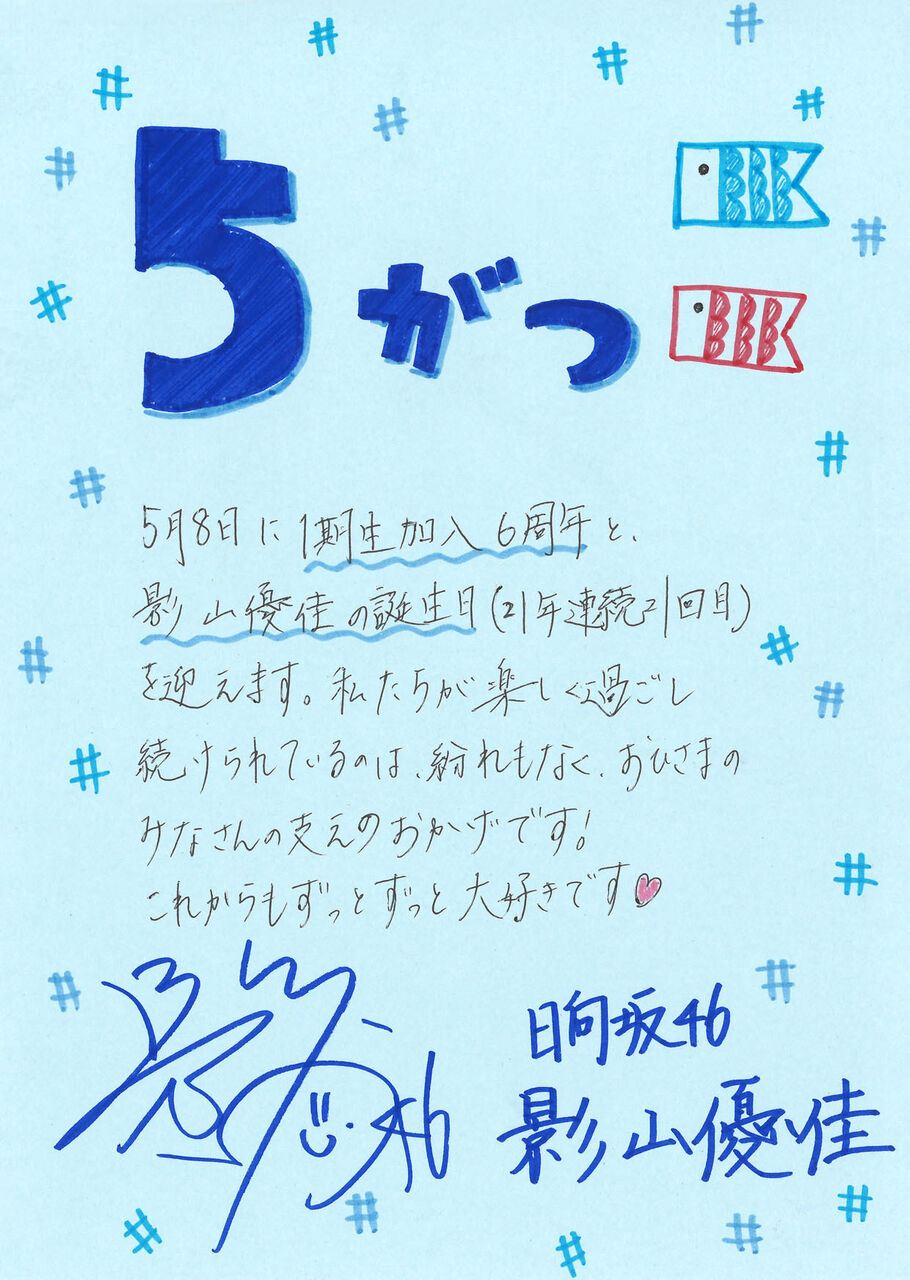 5がつ
5月8日に1期生加入6周年と、
影山優佳の誕生日(21年連続21回目)
を迎えます。私たちが楽しく過ごし
続けられているのは、紛れもなく、おひさまの
みなさんの支えのおかげです!
これからもずっとずっと大好きです
日向坂46
影山優佳